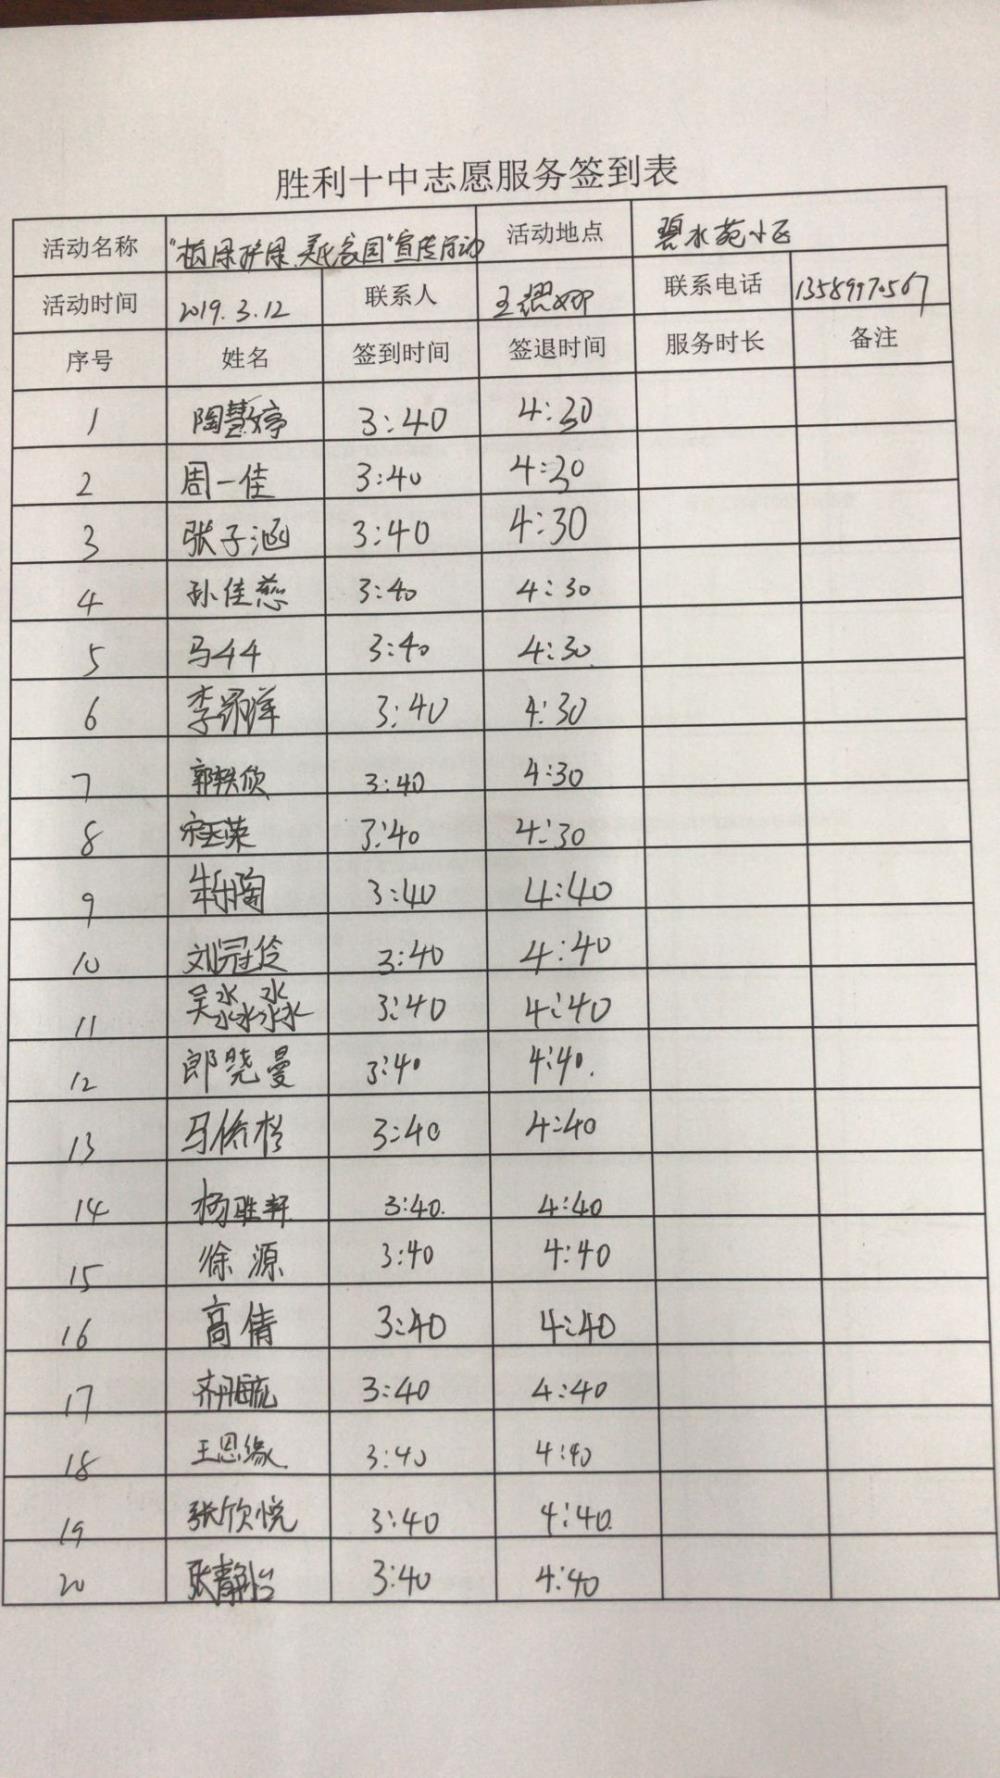 胜利十中志愿服务签到表
活动名称 "植绿护绿 美化家园"宣传活动 活动地点 碧水苑小区
活动时间 2019.3.12 联系人 王 娜 联系电话 13589970567
序号 姓名 签到时间 签退时间 服务时长 备注
1 陶慧婷 3:40 4:30
2 周一佳 3:40 4:30
3 张子涵 3:40 4:30
4 孙佳慈 3:40 4:30
5 马44 3:40 4:30
6 李 洋 3:40 4:30
7 郭轶欣 3:40 4:30
8 宋钰荣 3:40 4:30
9 朱 陶 3:40 4:40
10 刘冠伶 3:40 4:40
11 吴淼淼 3:40 4:40
12 郎晓曼 3:40 4:40.
13 马 杉 3:40 4:40
14 杨胜轩 3:40. 4:40
15 徐源 3:40 4:40
16 高倩 3:40 4:40
17 齐 毓 3:40 4:40
18 王恩缘 3:40 4:40
19 张欣悦 3:40 4:40.
20 张静怡 3:40 4:40